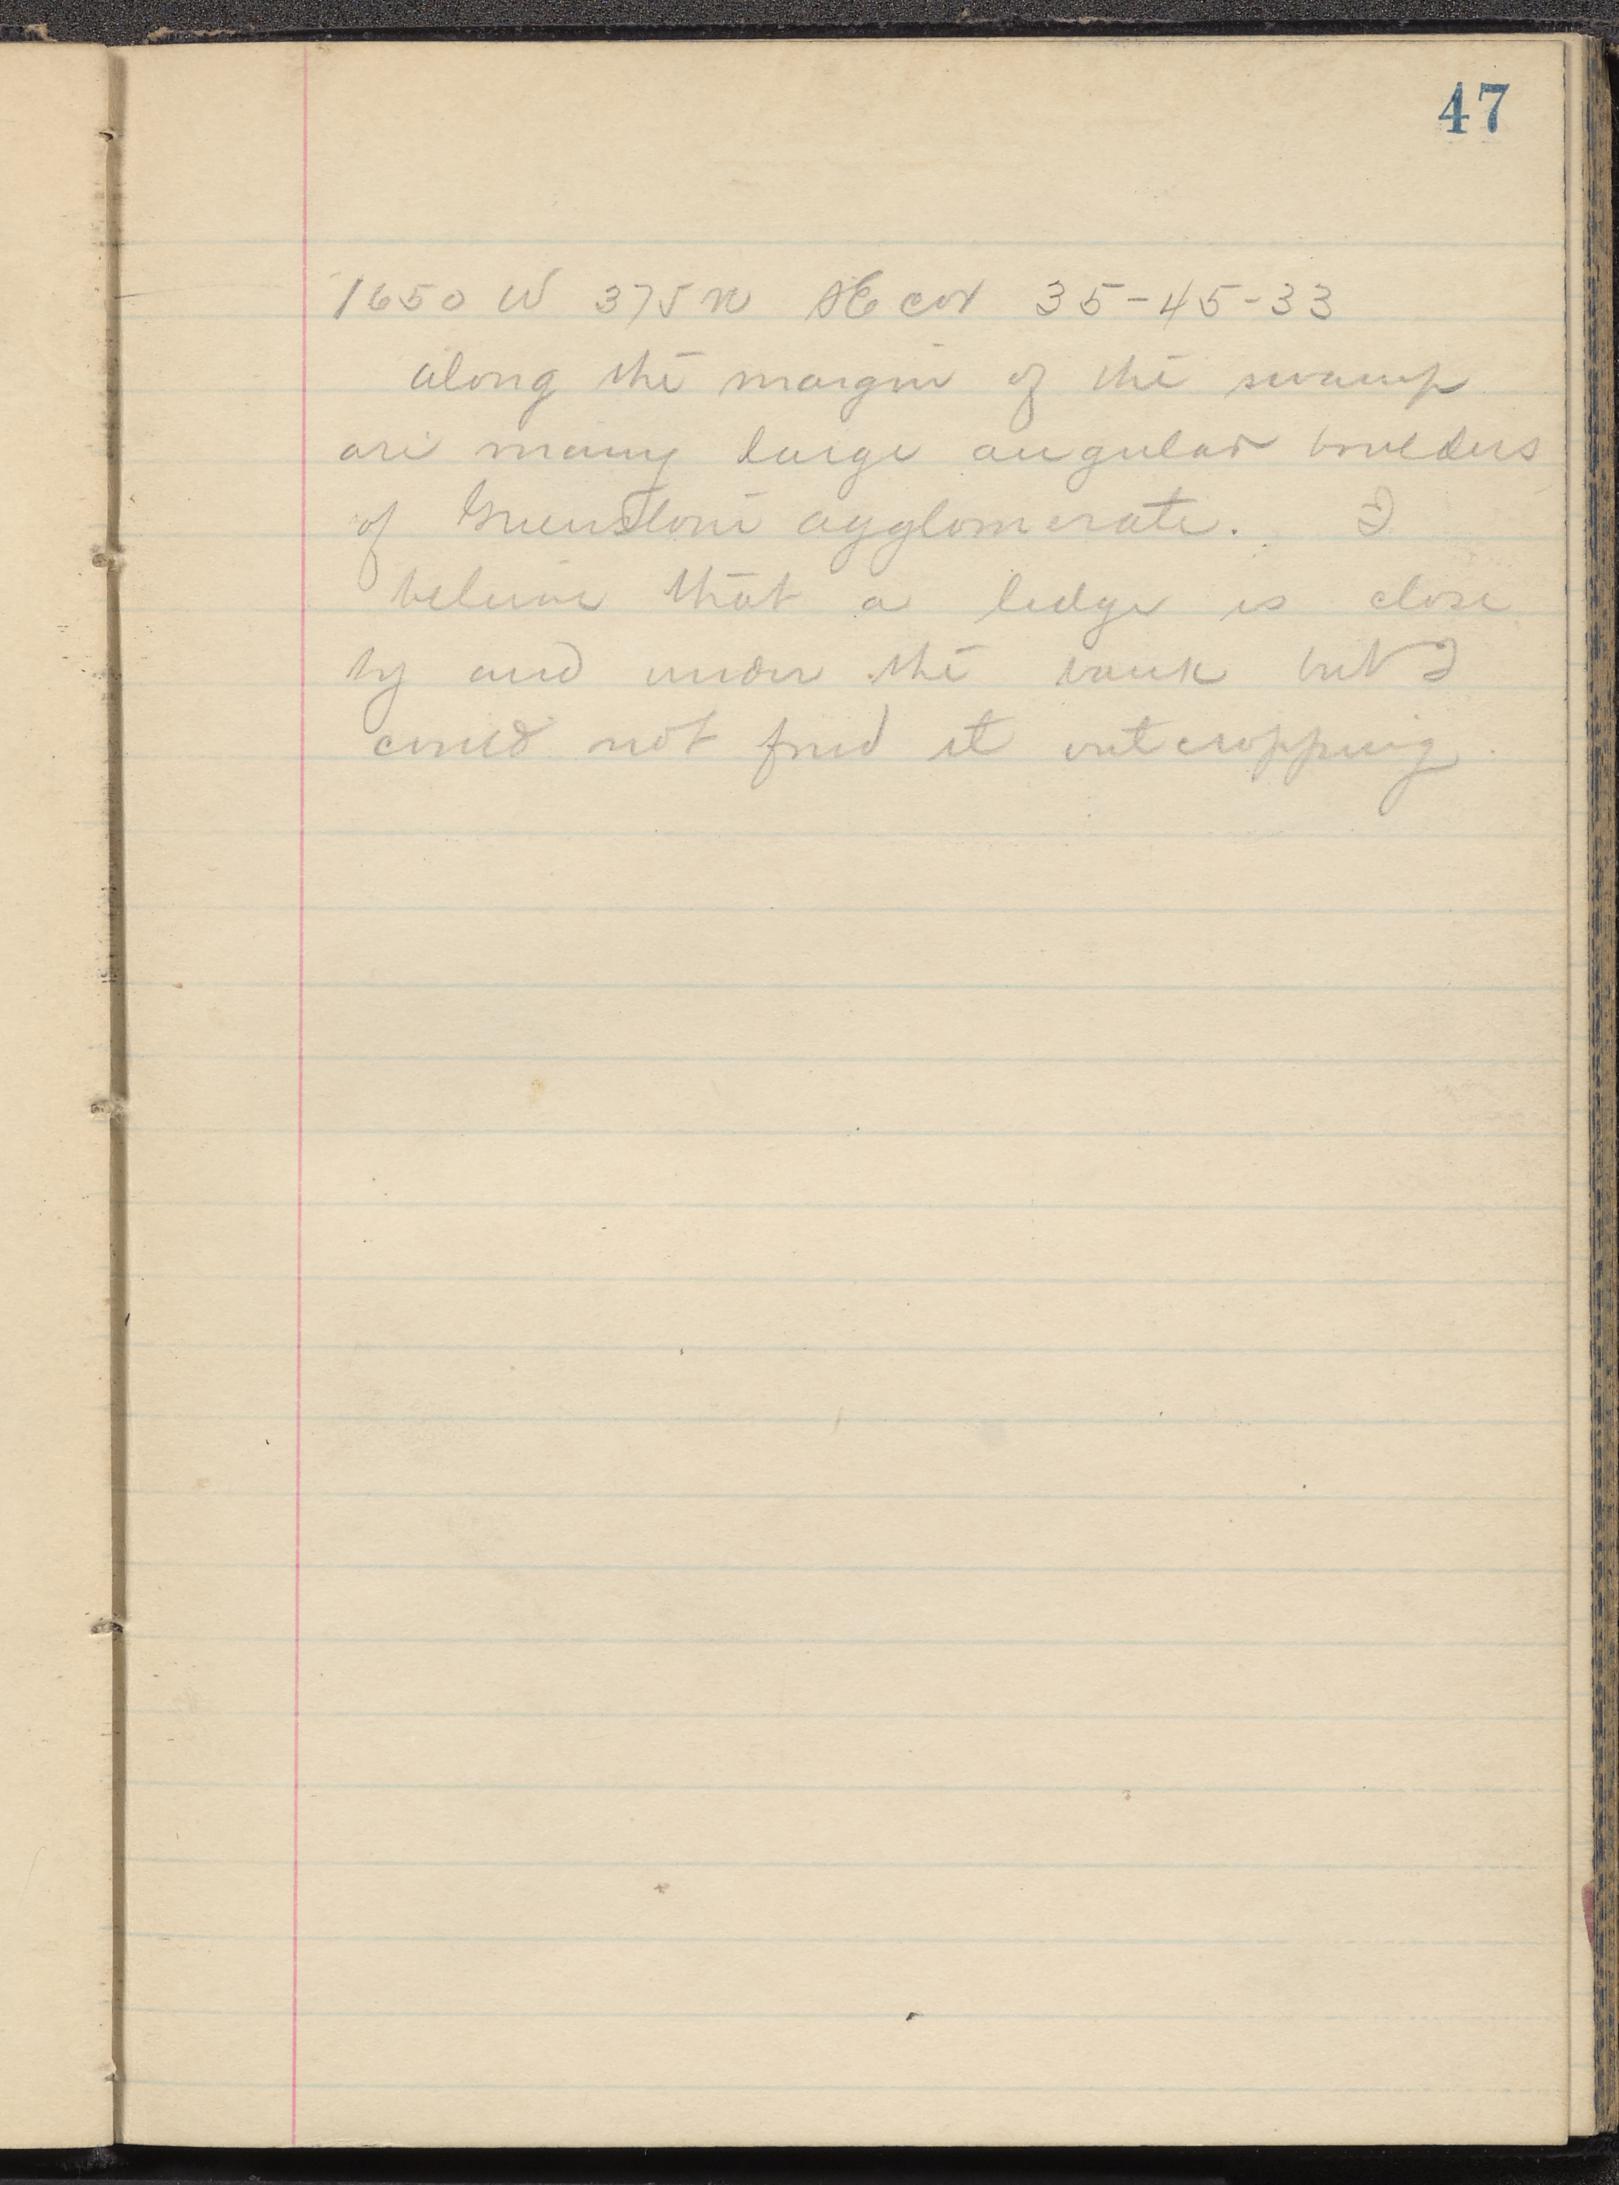 47
1650 W 375 N SE cor 35-45-33
Along the margin of the swamp
are many large angular boulders
of Greenstone agglomerate. I
believe that a ledge is close
by and under the bank but I
could not find it outcropping.